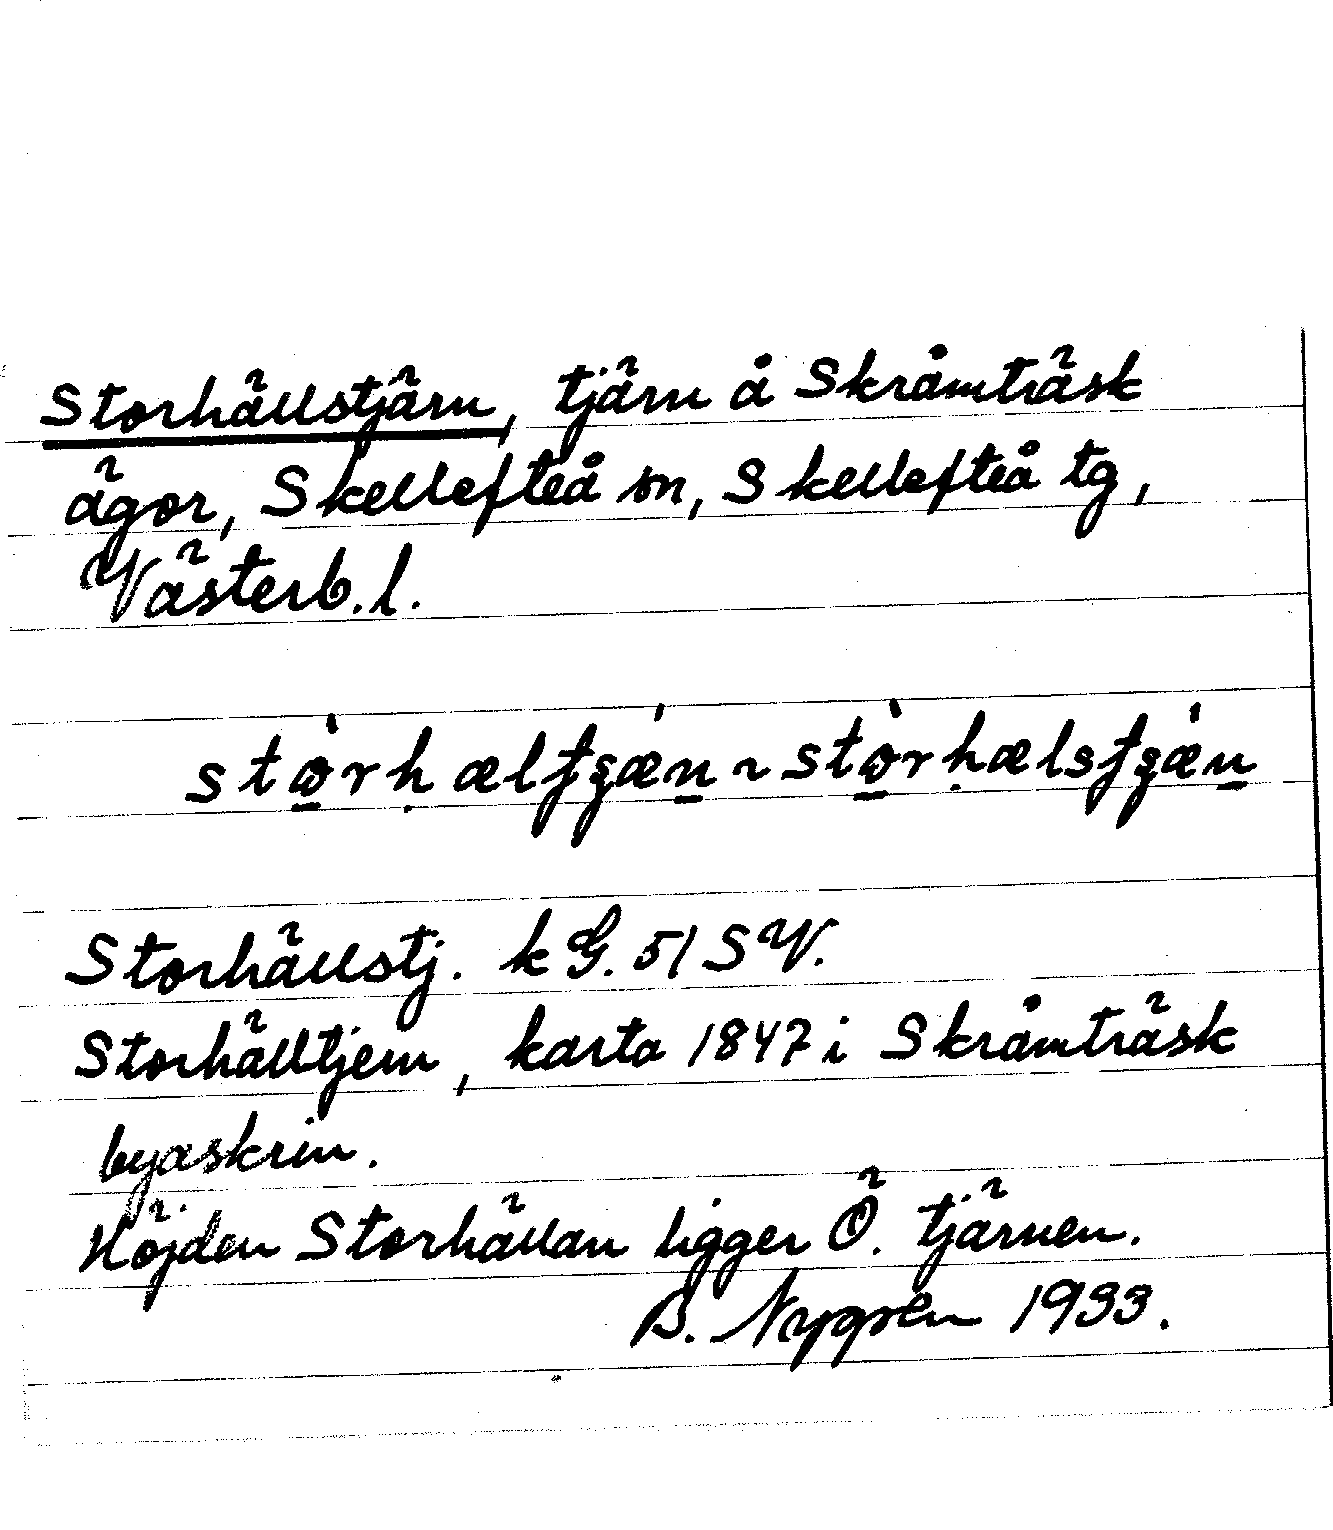 Storhällstjärn, tjärn å Skråmträsk
ägor, Skellefteå sn, Skellefteå tg,
Västerb.l.
Storhällstj. kG. 51 SV.
Storhälltjern, karta 1847 i Skråmträsk
byaskrin.
Höjden Storhällan ligger Ö. tjärnen.
B. Nygren 1933.